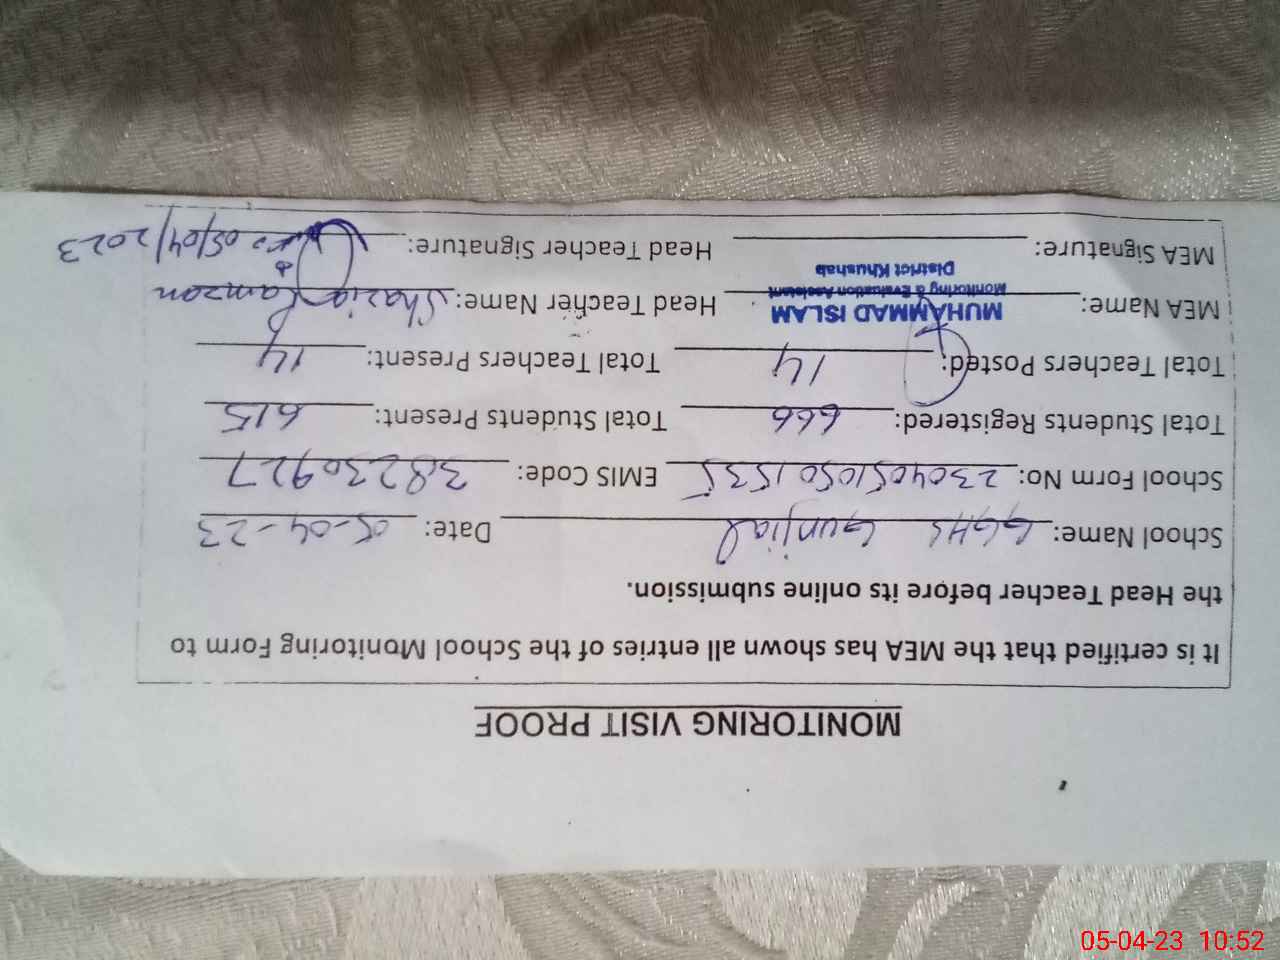 MONITORING VISIT PROOF
It is certified that the MEA has shown all entries of the School Monitoring Form to
the Head Teacher before its online submission.
School Name: GGHS Gunjial Date: 05-04-23
School Form No: 23040510501535 EMIS Code: 38230927
Total Students Registered: 666 Total Students Present: 615
Total Teachers Posted: 14 Total Teachers Present: 14
MEA Name: MUHAMMAD ISLAM Head Teacher Name: Shazia
Monitoring & Evaluation Assistant
District Khushab
MEA Signature: Head Teacher Signature: 05/04/2023
05-04-23 10:52